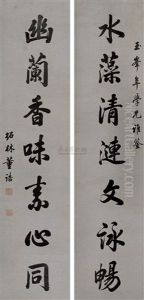 玉峯年學兄雅鑒
水藻清漣文詠暢
幽蘭香味素心同
蔗林董誥